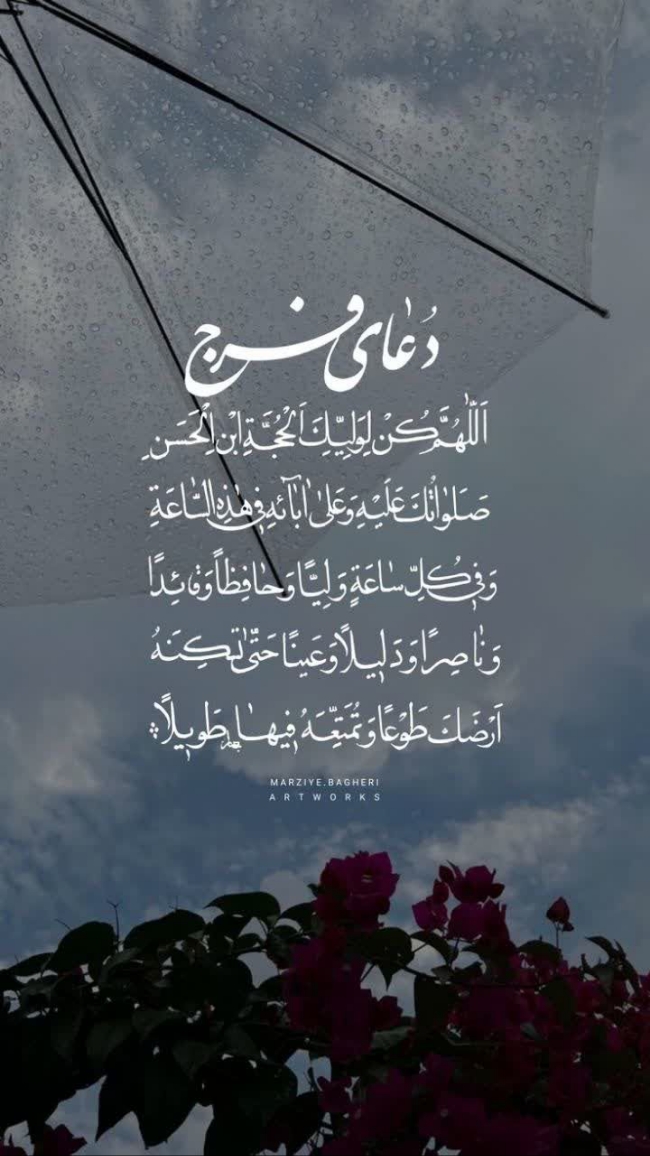 دُعٰای فرج
اَللّٰهُمَّ كُنْ لِوَلِيِّكَ الْحُجَّةِ ابْنِ الْحَسَنِ
صَلَوٰاتُكَ عَلَيْهِ وَعَلىٰ اٰبٰآئِهِ في هٰذِهِ السّٰاعَةِ
وَفي كُلِّ سٰاعَةٍ وَلِيًّا وَحٰافِظاً وَقٰائِدًا
وَنٰاصِرًا وَدَليلاً وَعَيْنًا حَتّٰى تُسْكِنَهُ
اَرْضَكَ طَوْعًا وَتُمَتِّعَهُ فيهٰا طَويلاً
MARZIYE.BAGHERI
ARTWORKS